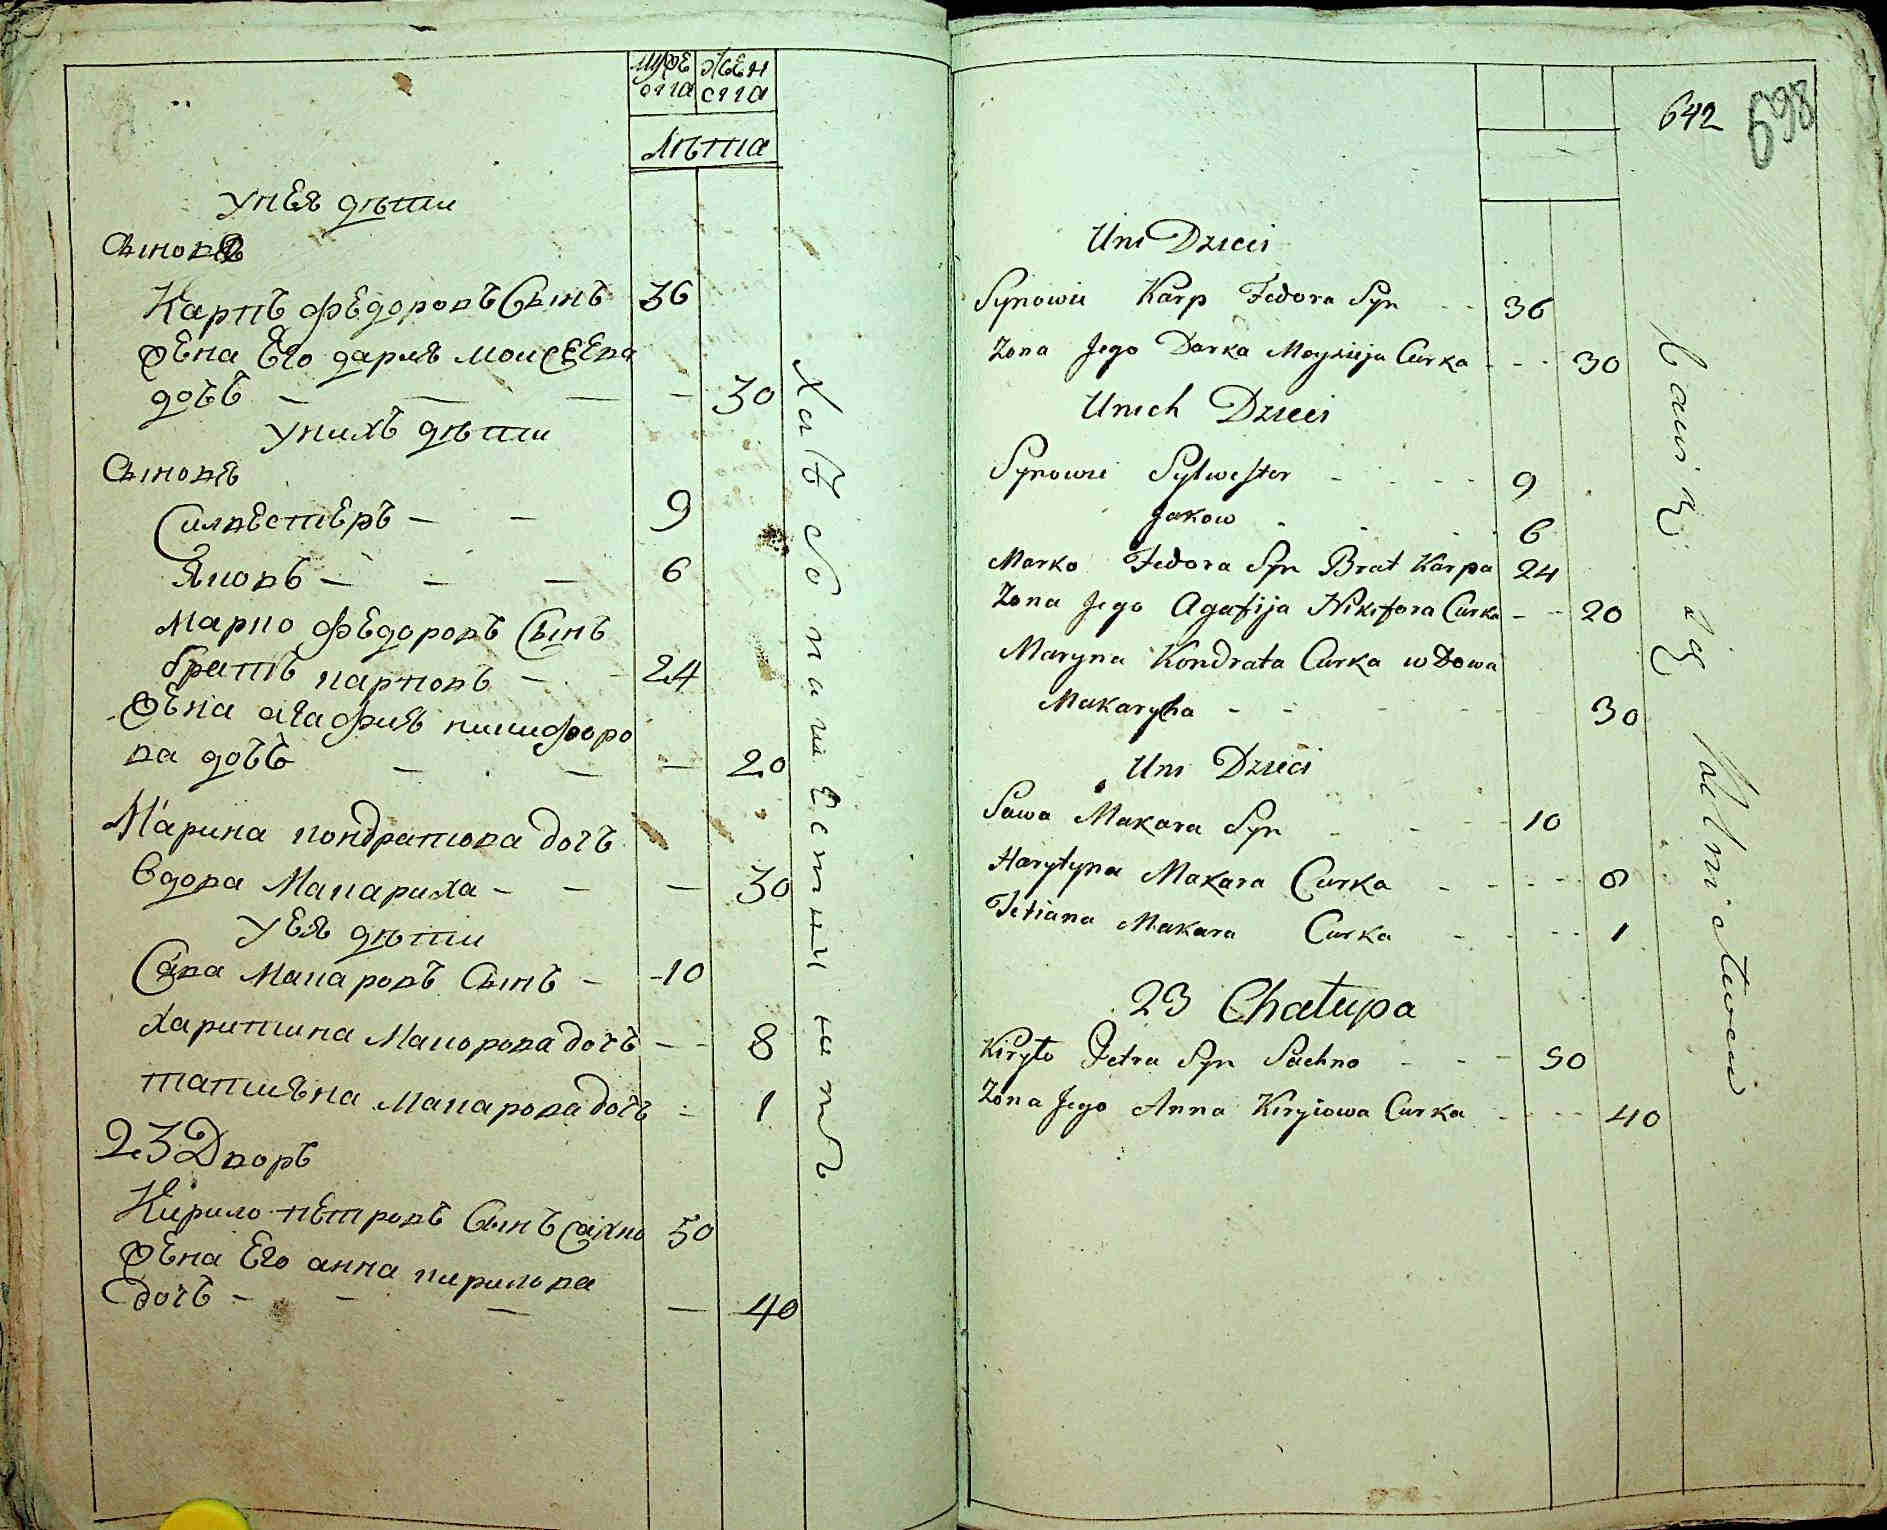 Муже Жен
ска ска
Лѣта
У нея дѣти
Сыновя
Карпъ Федоровъ Сынъ 36
жена Его дария моисеева
дочь — — — — 30
У нихъ дѣти
Сыновя
Силвестеръ — — 9
Яковъ — — — 6
Марко Федоровъ Сынъ
братъ карповъ — - 24
жена агафия никифоро
ва дочь — — — 20
Марина кондратова дочъ
вдова Макариха — — — 30
У ея дѣти
Сава Макаровъ Сынъ — 10
Харитина Макорова дочъ — - 8
татияна Макарова дочъ - 1
23 Дворъ
Кирило петровъ Сынъ Сахно 50
жена Его анна кирилова
дочъ - - — — 40
642
698
Uni Dzieci
Synowie Karp Fedora Syn - - 36
Zona Jego Darka Moysieja Curka - - - 30
Unich Dzieci
Synowie Sylwester - - - - 9
Jakow - - - - 6
Marko Fedora Syn Brat Karpa 24
Zona Jego Agafija Nikifora Curka - - 20
Maryna Kondrata Curka wdowa
Makarycha - - - - - 30
Uni Dzieci
Sawa Makara Syn - - - 10
Harytyna Makara Curka - - - - 8
Tetiana Makara Curka - - - - 1
23 Chałupa
Kiryło Petra Syn Sachno - - - 50
Zona Jego Anna Kiryłowa Curka - - - 40